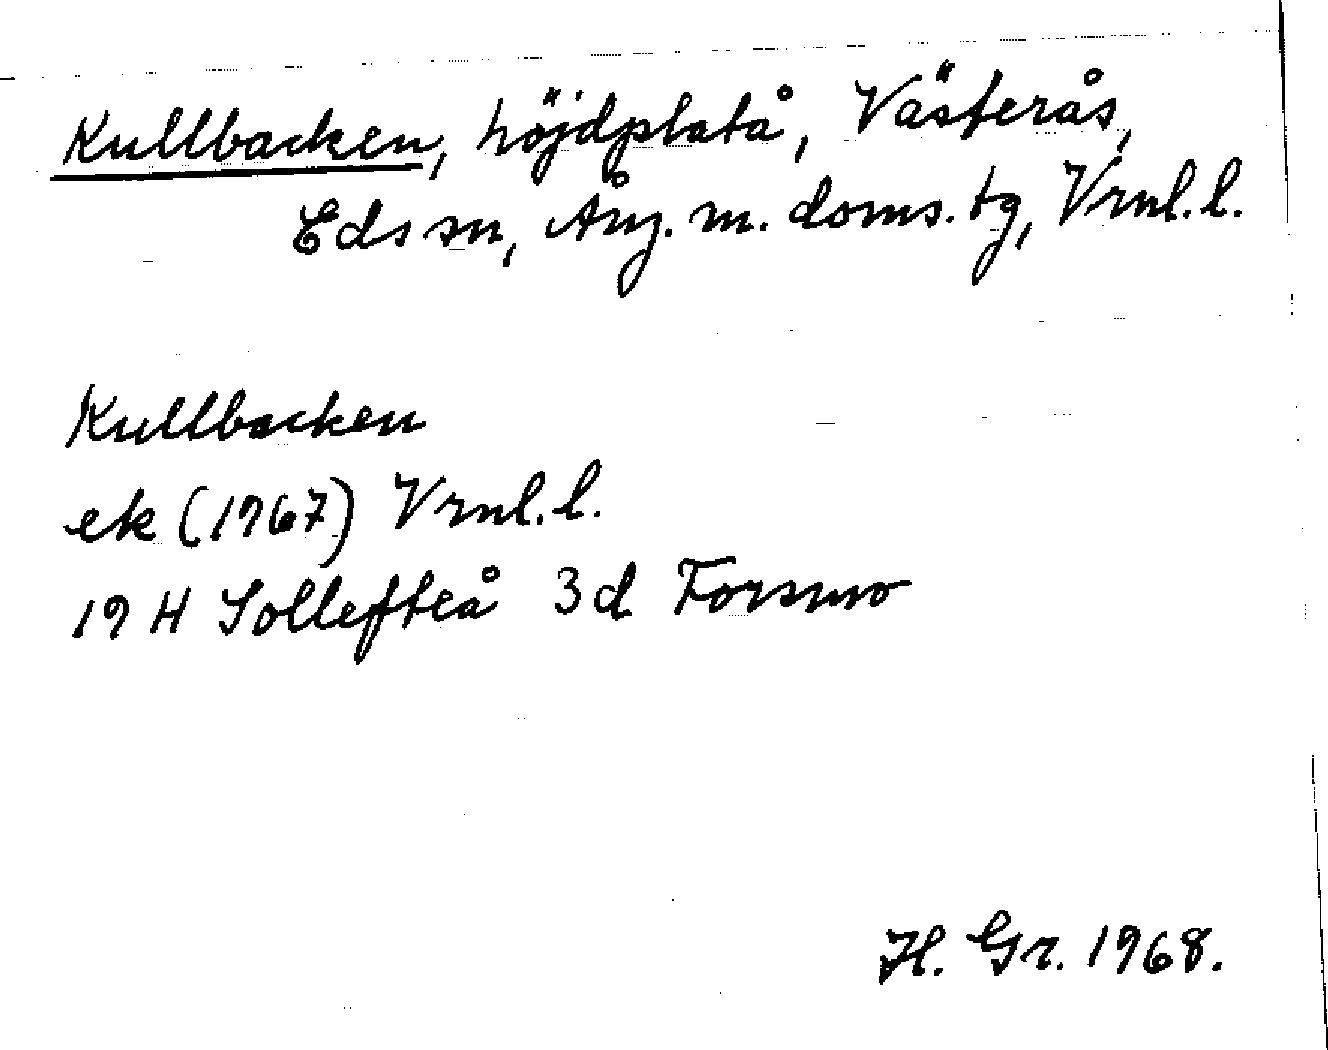 Kullbacken, höjdplatå, Västerås,
Eds sn, Ång. m. doms. tg, Vrnl. l.
Kullbacken
ek (1967) Vrnl. l.
19 H Sollefteå 3d Forsmo
H. Gr. 1968.